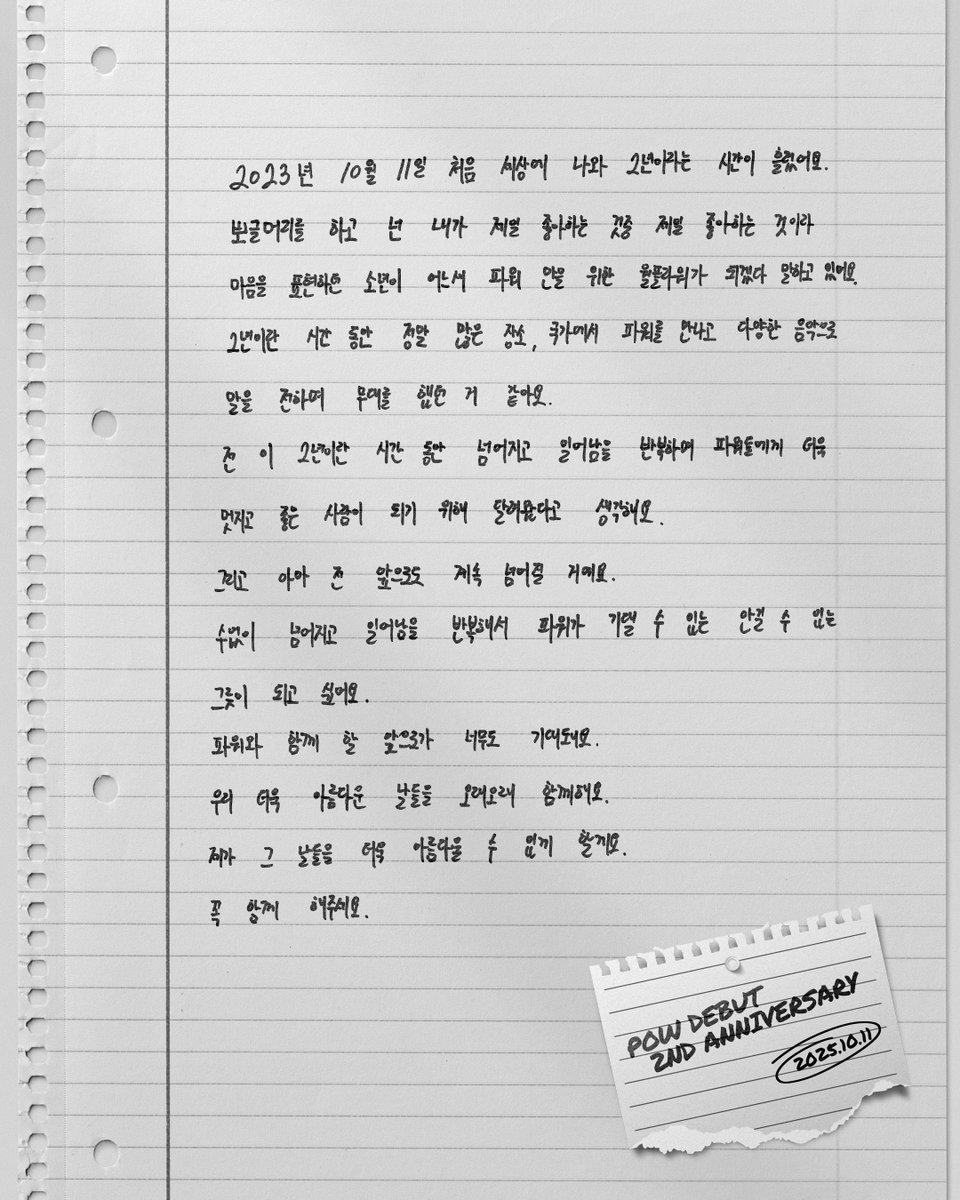 2023년 10월 11일 처음 세상에 나와 2년이라는 시간이 흘렀어요.
뽀글머리를 하고 넌 내가 제일 좋아하는 것중 제일 좋아하는 것이라
마음을 표현하던 소년이 어느새 파워 만을 위한 월플라워가 되겠다 말하고 있어요.
2년이란 시간 동안 정말 많은 장소, 국가에서 파워를 만나고 다양한 음악으로
말을 전하며 무대를 했던 거 같아요.
전 이 2년이란 시간 동안 넘어지고 일어남을 반복하며 파워들에게 더욱
멋지고 좋은 사람이 되기 위해 달려왔다고 생각해요.
그리고 아마 전 앞으로도 계속 넘어질 거예요.
수없이 넘어지고 일어남을 반복해서 파워가 기댈 수 있는 안길 수 있는
그릇이 되고 싶어요.
파워와 함께 할 앞으로가 너무도 기대돼요.
우리 더욱 아름다운 날들을 오래오래 함께해요.
제가 그 날들을 더욱 아름다울 수 있게 할게요.
꼭 함께 해주세요.
POW DEBUT
2ND ANNIVERSARY
2025.10.11